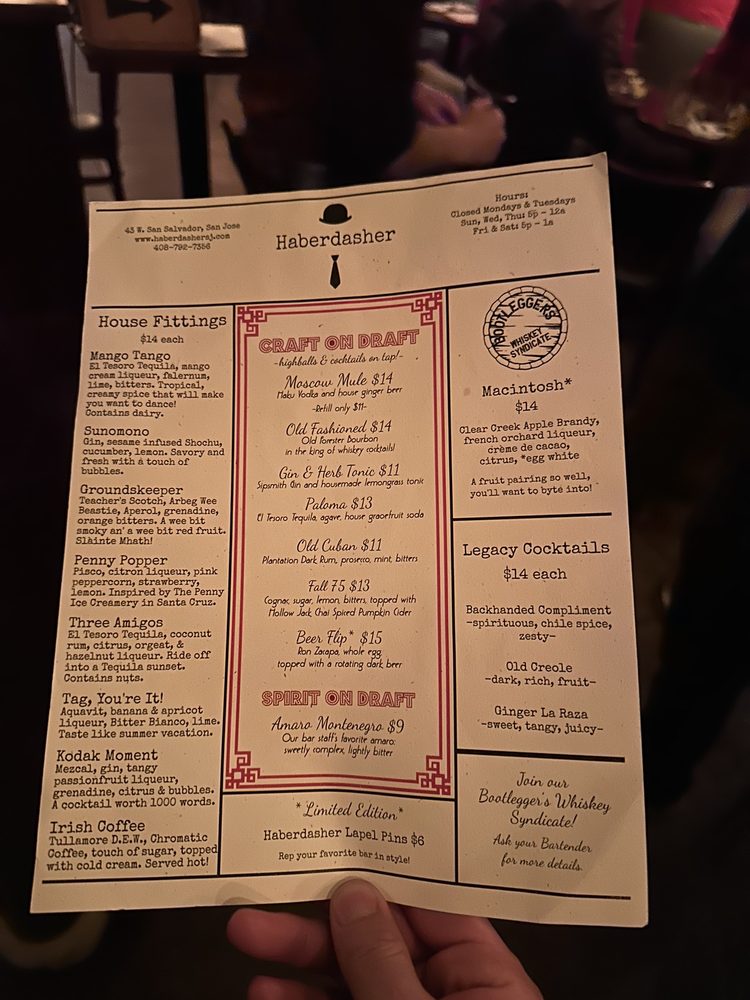 43 W. San Salvador, San Jose
www.haberdashersj.com
408-792-7356
Haberdasher
Hours:
Closed Mondays & Tuesdays
Sun, Wed, Thu: 5p - 12a
Fri & Sat: 5p - 1a
House Fittings
$14 each
Mango Tango
El Tesoro Tequila, mango
cream liqueur, falernum,
lime, bitters. Tropical,
creamy spice that will make
you want to dance!
Contains dairy.
Sunomono
Gin, sesame infused Shochu,
cucumber, lemon. Savory and
fresh with a touch of
bubbles.
Groundskeeper
Teacher's Scotch, Arbeg Wee
Beastie, Aperol, grenadine,
orange bitters. A wee bit
smoky an' a wee bit red fruit.
Slàinte Mhath!
Penny Popper
Pisco, citron liqueur, pink
peppercorn, strawberry,
lemon. Inspired by The Penny
Ice Creamery in Santa Cruz.
Three Amigos
El Tesoro Tequila, coconut
rum, citrus, orgeat, &
hazelnut liqueur. Ride off
into a Tequila sunset.
Contains nuts.
Tag, You're It!
Aquavit, banana & apricot
liqueur, Bitter Bianco, lime.
Taste like summer vacation.
Kodak Moment
Mezcal, gin, tangy
passionfruit liqueur,
grenadine, citrus & bubbles.
A cocktail worth 1000 words.
Irish Coffee
Tullamore D.E.W., Chromatic
Coffee, touch of sugar, topped
with cold cream. Served hot!
CRAFT ON DRAFT
-highballs & cocktails on tap!-
Moscow Mule $14
Haku Vodka and house ginger beer
-Refill only $11-
Old Fashioned $14
Old Forester Bourbon
in the king of whiskey cocktails!
Gin & Herb Tonic $11
Sipsmith Gin and housemade lemongrass tonic
Paloma $13
El Tesoro Tequila, agave, house grapefruit soda
Old Cuban $11
Plantation Dark Rum, prosecco, mint, bitters
Fall 75 $13
Cognac, sugar, lemon, bitters, topped with
Hollow Jack Chai Spiced Pumpkin Cider
Beer Flip* $15
Ron Zacapa, whole egg,
topped with a rotating dark beer
SPIRIT ON DRAFT
Amaro Montenegro $9
Our bar staff's favorite amaro:
sweetly complex, lightly bitter
*Limited Edition*
Haberdasher Lapel Pins $6
Rep your favorite bar in style!
BOOTLEGGERS
WHISKEY
SYNDICATE
Macintosh*
$14
Clear Creek Apple Brandy,
french orchard liqueur,
crème de cacao,
citrus, *egg white
A fruit pairing so well,
you'll want to byte into!
Legacy Cocktails
$14 each
Backhanded Compliment
-spirituous, chile spice,
zesty-
Old Creole
-dark, rich, fruit-
Ginger La Raza
-sweet, tangy, juicy-
Join our
Bootlegger's Whiskey
Syndicate!
Ask your Bartender
for more details.